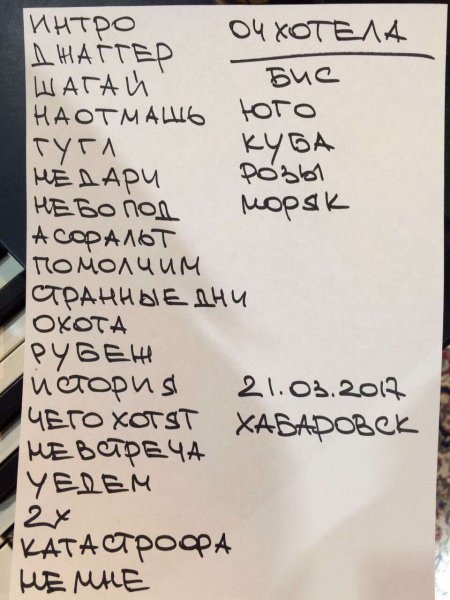 ИНТРО
ДЖАГГЕР
ШАГАЙ
НАОТМАШЬ
ГУГЛ
НЕ ДАРИ
НЕБО ПОД
АСФАЛЬТ
ПОМОЛЧИМ
СТРАННЫЕ ДНИ
ОХОТА
РУБЕЖ
ИСТОРИЯ
ЧЕГО ХОТЯТ
НЕВСТРЕЧА
УЕДЕМ
2Х
КАТАСТРОФА
НЕ МНЕ
ОЧ ХОТЕЛА
БИС
ЮГО
КУБА
РОЗЫ
МОРЯК
21.03.2017
ХАБАРОВСК